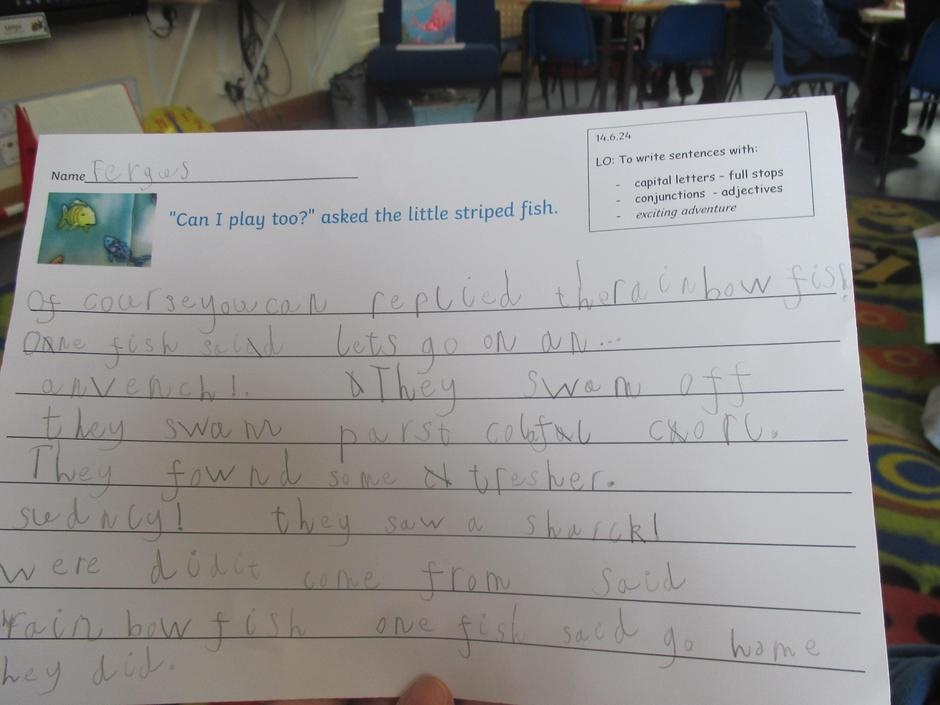 14.6.24
LO: To write sentences with:
- capital letters - full stops
- conjunctions - adjectives
- exciting adventure
Name Fergus
"Can I play too?" asked the little striped fish.
Of courseyoucan replied therainbow fish
One fish saiad lets go on an...
anvench!. They swam off
they swam parst colafal cxorl.
They fownd some tresher.
sudncy! they saw a sharck!
were didit come from said
rain bow fish one fish said go home
hey did.